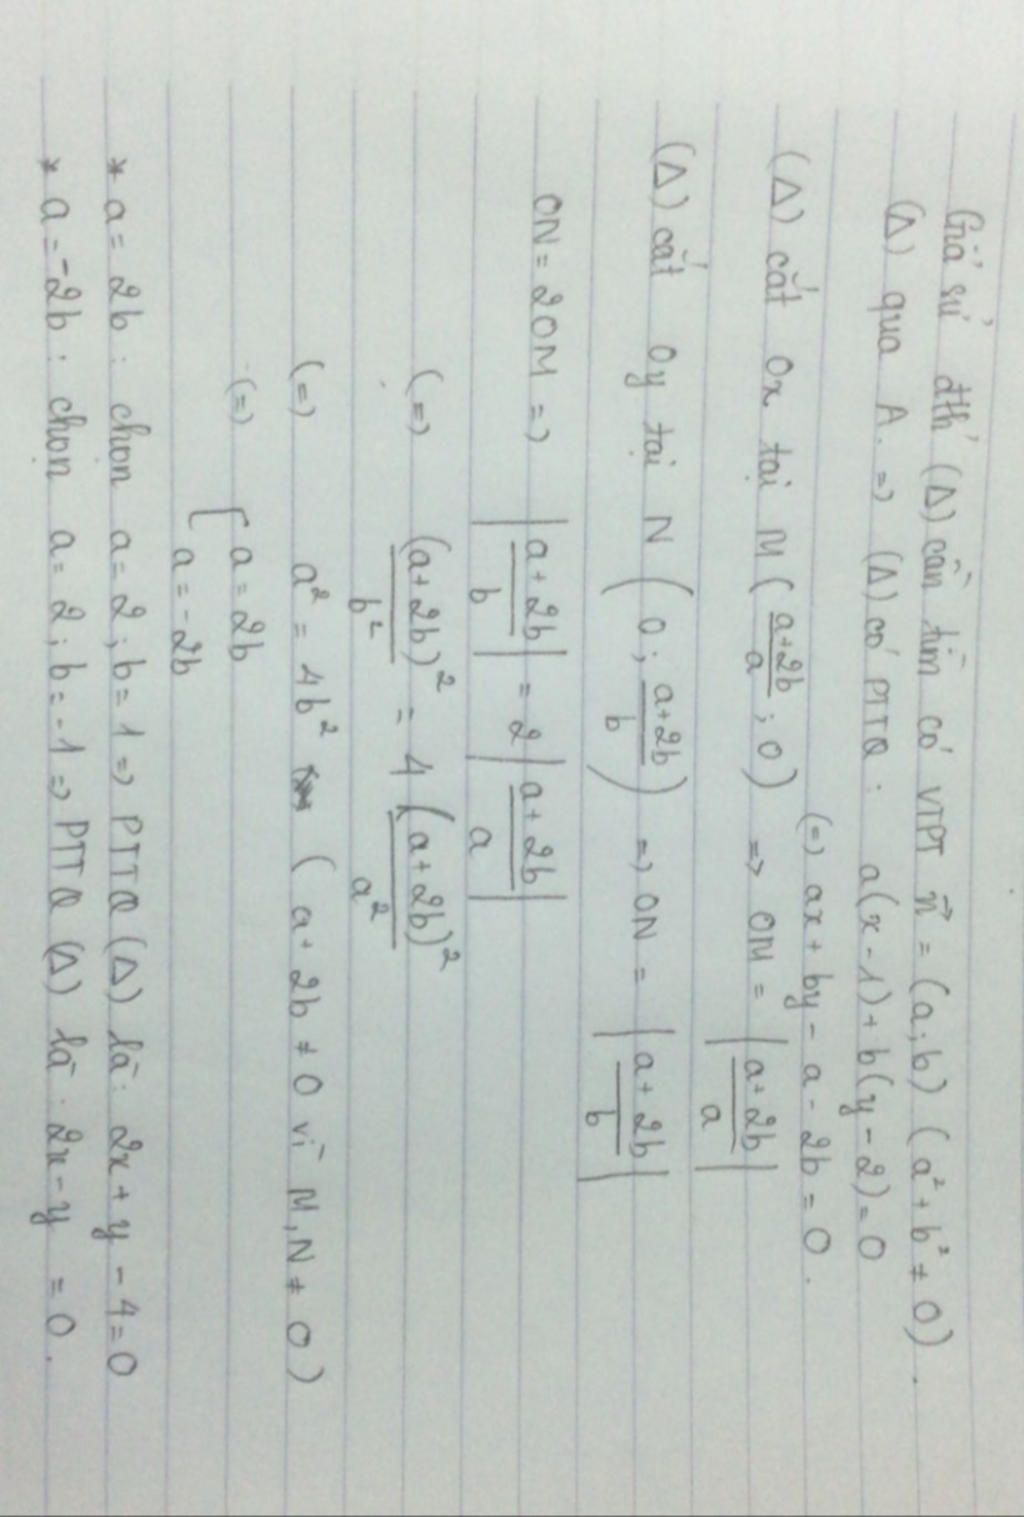 Giả sử đth' (Δ) cần tìm có VTPT n⃗ = (a; b) (a² + b² ≠ 0).
(Δ) qua A. => (Δ) có PTTQ: a(x - 1) + b(y - 2) = 0
(=) ax + by - a - 2b = 0.
(Δ) cắt Ox tại M ( (a+2b)/a ; 0 ) => OM = | (a+2b)/a |
(Δ) cắt Oy tại N ( 0 ; (a+2b)/b ) => ON = | (a+2b)/b |
ON = 2OM => | (a+2b)/b | = 2 | (a+2b)/a |
(=) (a+2b)²/b² = 4 (a+2b)²/a²
(=) a² = 4b² ( a + 2b ≠ 0 vì M, N ≠ O )
(=) [ a = 2b
a = -2b
* a = 2b : chọn a = 2 ; b = 1 => PTTQ (Δ) là: 2x + y - 4 = 0
* a = -2b : chọn a = 2 ; b = -1 => PTTQ (Δ) là : 2x - y = 0.